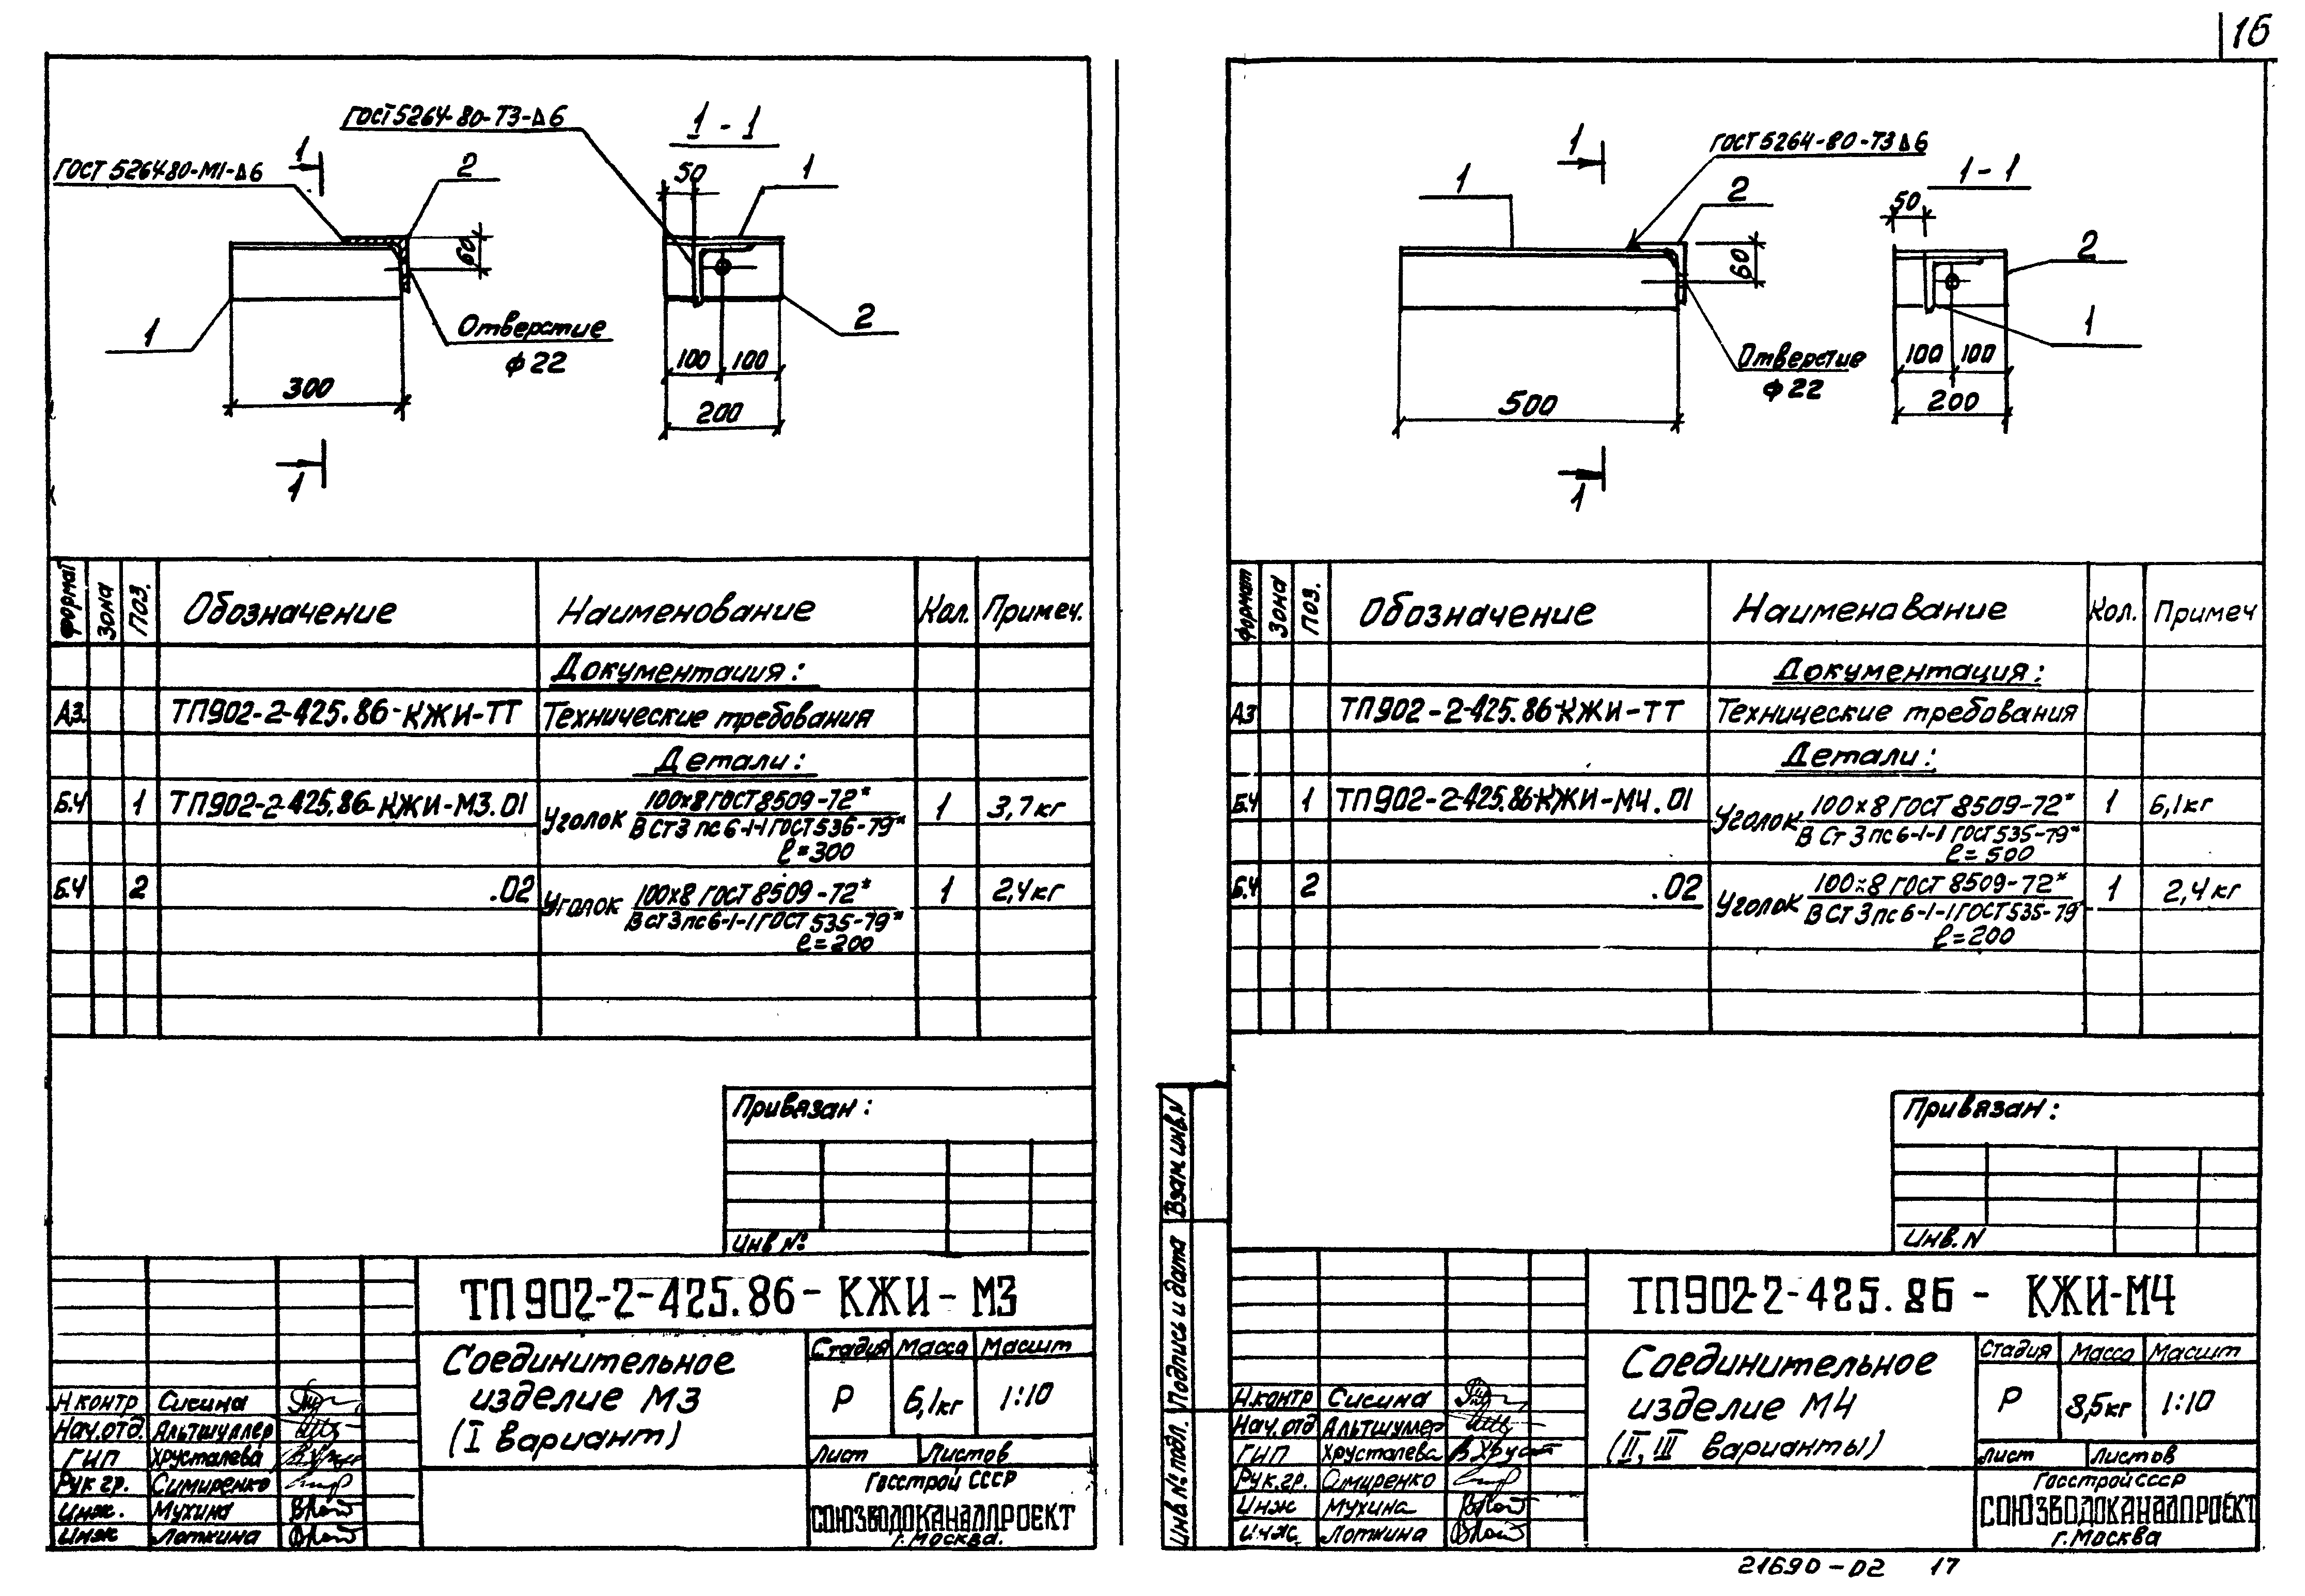 16
ГОСТ 5264-80-Т3-Δ6
1-1
1
ГОСТ 5264 80-М1-Δ6
2
50
1
60
1
Отверстие
ф 22
2
300
100
100
200
1
Формат
Зона
Поз.
Обозначение
Наименование
Кол.
Примеч.
Документация:
А3.
ТП902-2-425.86-КЖИ-ТТ
Технические требования
Детали:
Б.Ч
1
ТП902-2-425.86-КЖИ-М3.01
Уголок 100х8 ГОСТ 8509-72*
В Ст3 пс 6-1-1 ГОСТ 535-79*
ℓ=300
1
3,7кг
Б.Ч
2
.02
Уголок 100х8 ГОСТ 8509-72*
В Ст 3 пс 6-1-1 ГОСТ 535-79*
ℓ=200
1
2,4кг
Привязан:
Инв №
ТП902-2-425.86- КЖИ- М3
Соединительное
изделие М3
(I вариант)
Стадия
Масса
Масшт
Р
6,1кг
1:10
Лист
Листов
Госстрой СССР
СОЮЗВОДОКАНАЛПРОЕКТ
г. Москва.
Н.контр Сисина
Нач.отд. Альтшуллер
ГИП Хрусталева
Рук гр. Симиренко
Инж. Мухина
Инж Лоткина
1
ГОСТ 5264-80-Т3 Δ6
1
2
1-1
50
60
2
1
Отверстие
ф 22
500
100
100
200
1
Формат
Зона
Поз.
Обозначение
Наименавание
Кол.
Примеч
Документация:
А3
ТП902-2-425.86-КЖИ-ТТ
Технические требования
Детали:
Б.Ч
1
ТП902-2-425.86-КЖИ-М4.01
Уголок 100х8 ГОСТ 8509-72*
В Ст 3 пс 6-1-1 ГОСТ 535-79*
ℓ=500
1
6,1кг
Б.Ч
2
.02
Уголок 100х8 ГОСТ 8509-72*
В Ст 3 пс 6-1-1 ГОСТ 535-79
ℓ=200
1
2,4кг
Привязан:
Инв. N
Взам инв.N
Подпись и дата
Инв № подл.
ТП902-2-425.86 - КЖИ-М4
Соединительное
изделие М4
(II, III варианты)
Стадия
Масса
Масшт
Р
8,5кг
1:10
Лист
Листов
Госстрой СССР
СОЮЗВОДОКАНАЛПРОЕКТ
г. Москва
Н.контр Сисина
Нач.отд Альтшулер
ГИП Хрусталева
Рук.гр. Симиренко
Инж Мухина
Инж. Лоткина
21690-02 17